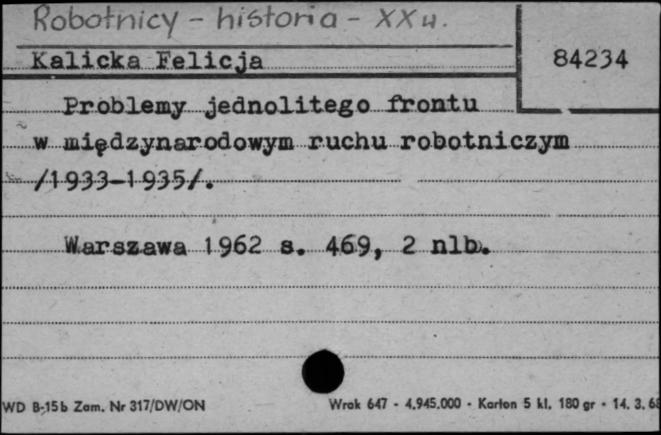 Robotnicy - historia - XX w.
Kalicka Felicja
84234
Problemy jednolitego frontu
w międzynarodowym ruchu robotniczym
/1933-1935/.
Warszawa 1962 s. 469, 2 nlb.
WD B-15b Zam. Nr 317/DW/ON
Wrak 647 - 4.945.000 - Karton 5 kl. 180 gr - 14. 3. 68